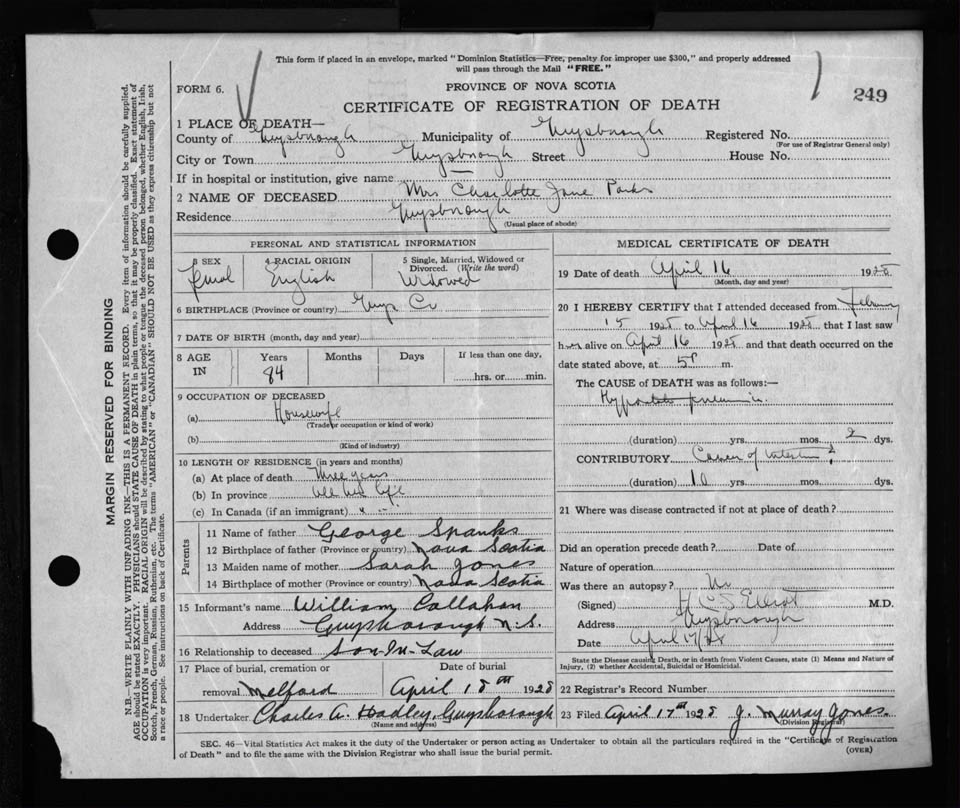 This form if placed in an envelope, marked "Dominion Statistics—Free, penalty for improper use $300," and properly addressed
will pass through the Mail "FREE."
FORM 6.
PROVINCE OF NOVA SCOTIA
249
CERTIFICATE OF REGISTRATION OF DEATH
1 PLACE OF DEATH—
County of Guysborough Municipality of Guysborough Registered No.
(For use of Registrar General only)
City or Town Guysborough Street House No.
If in hospital or institution, give name —
2 NAME OF DECEASED Mrs Charlotte Jane Parks
Residence Guysborough
(Usual place of abode)
PERSONAL AND STATISTICAL INFORMATION
3 SEX 4 RACIAL ORIGIN 5 Single, Married, Widowed or
Divorced. (Write the word)
English Widowed
6 BIRTHPLACE (Province or country) Guys Co
7 DATE OF BIRTH (month, day and year)
8 AGE IN Years Months Days If less than one day,
84 hrs. or min.
9 OCCUPATION OF DECEASED
(a) Housewife
(Trade or occupation or kind of work)
(b)
(Kind of industry)
10 LENGTH OF RESIDENCE (in years and months)
(a) At place of death three years
(b) In province all her life
(c) In Canada (if an immigrant) " "
Parents
11 Name of father George Spanks
12 Birthplace of father (Province or country) Nova Scotia
13 Maiden name of mother Sarah Jones
14 Birthplace of mother (Province or country) Nova Scotia
15 Informant's name William Callahan
Address Guysborough N.S.
16 Relationship to deceased Son-In-Law
17 Place of burial, cremation or Date of burial
removal Melford April 18th 1928
18 Undertaker Charles A. Hadley, Guysborough
(Name and address)
MEDICAL CERTIFICATE OF DEATH
19 Date of death April 16 1928
(Month, day and year)
20 I HEREBY CERTIFY that I attended deceased from February
15 1928 to April 16 1928 that I last saw
her alive on April 16 1928 and that death occurred on the
date stated above, at 5P m.
The CAUSE of DEATH was as follows:—
Hypostatic pneumonia
(duration) yrs. mos. 2 dys.
CONTRIBUTORY Cancer of intestine ?
(duration) 10 yrs. mos. dys.
21 Where was disease contracted if not at place of death?
Did an operation precede death? Date of
Nature of operation
Was there an autopsy? No
(Signed) Elliot M.D.
Address Guysborough
Date April 17/28
State the Disease causing Death, or in death from Violent Causes, state (1) Means and Nature of
Injury, (2) whether Accidental, Suicidal or Homicidal.
22 Registrar's Record Number
23 Filed April 17th 1928 J. Murray Jones.
(Division Registrar)
SEC. 46—Vital Statistics Act makes it the duty of the Undertaker or person acting as Undertaker to obtain all the particulars required in the "Certificate of Registration
of Death" and to file the same with the Division Registrar who shall issue the burial permit.
(OVER)
MARGIN RESERVED FOR BINDING
N.B.—WRITE PLAINLY WITH UNFADING INK—THIS IS A PERMANENT RECORD. Every item of information should be carefully supplied.
AGE should be stated EXACTLY. PHYSICIANS should STATE CAUSE OF DEATH in plain terms, so that it may be properly classified. Exact statement of
OCCUPATION is very important. RACIAL ORIGIN will be described by stating to what people or tongue the deceased person belonged, whether English, Irish,
Scotch, French, German, Russian, Ruthenian, etc. The terms "AMERICAN" or "CANADIAN" SHOULD NOT BE USED as they express citizenship but not
a race or people. See instructions on back of Certificate.